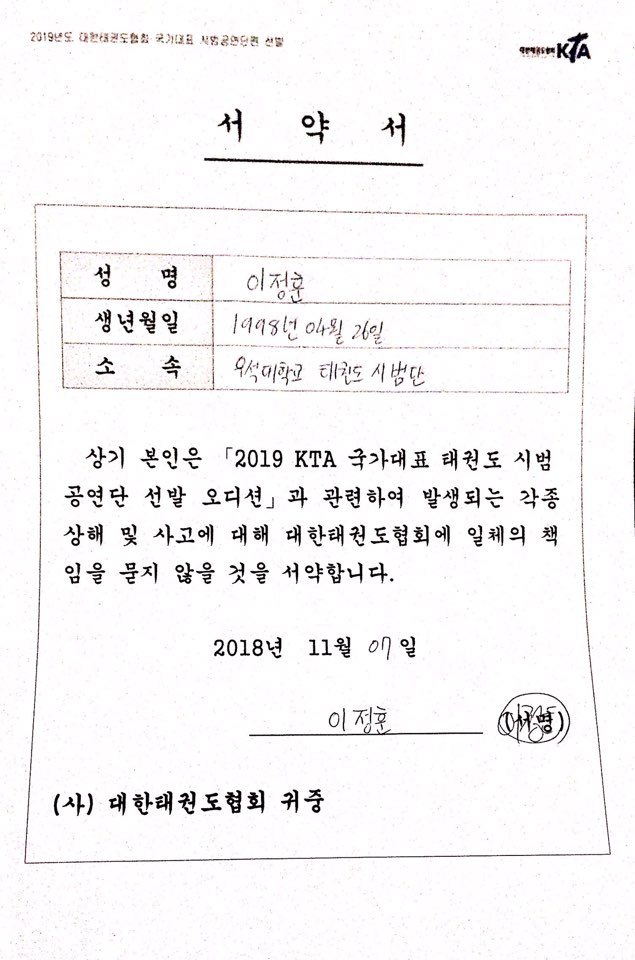 2019년도 대한태권도협회 국가대표 시범공연단원 선발
대한태권도협회 KTA
서 약 서
성 명 이정훈
생년월일 1998년 04월 26일
소 속 우석대학교 태권도 시범단
상기 본인은 「2019 KTA 국가대표 태권도 시범
공연단 선발 오디션」과 관련하여 발생되는 각종
상해 및 사고에 대해 대한태권도협회에 일체의 책
임을 묻지 않을 것을 서약합니다.
2018년 11월 07일
이정훈 (서명)
(사) 대한태권도협회 귀중